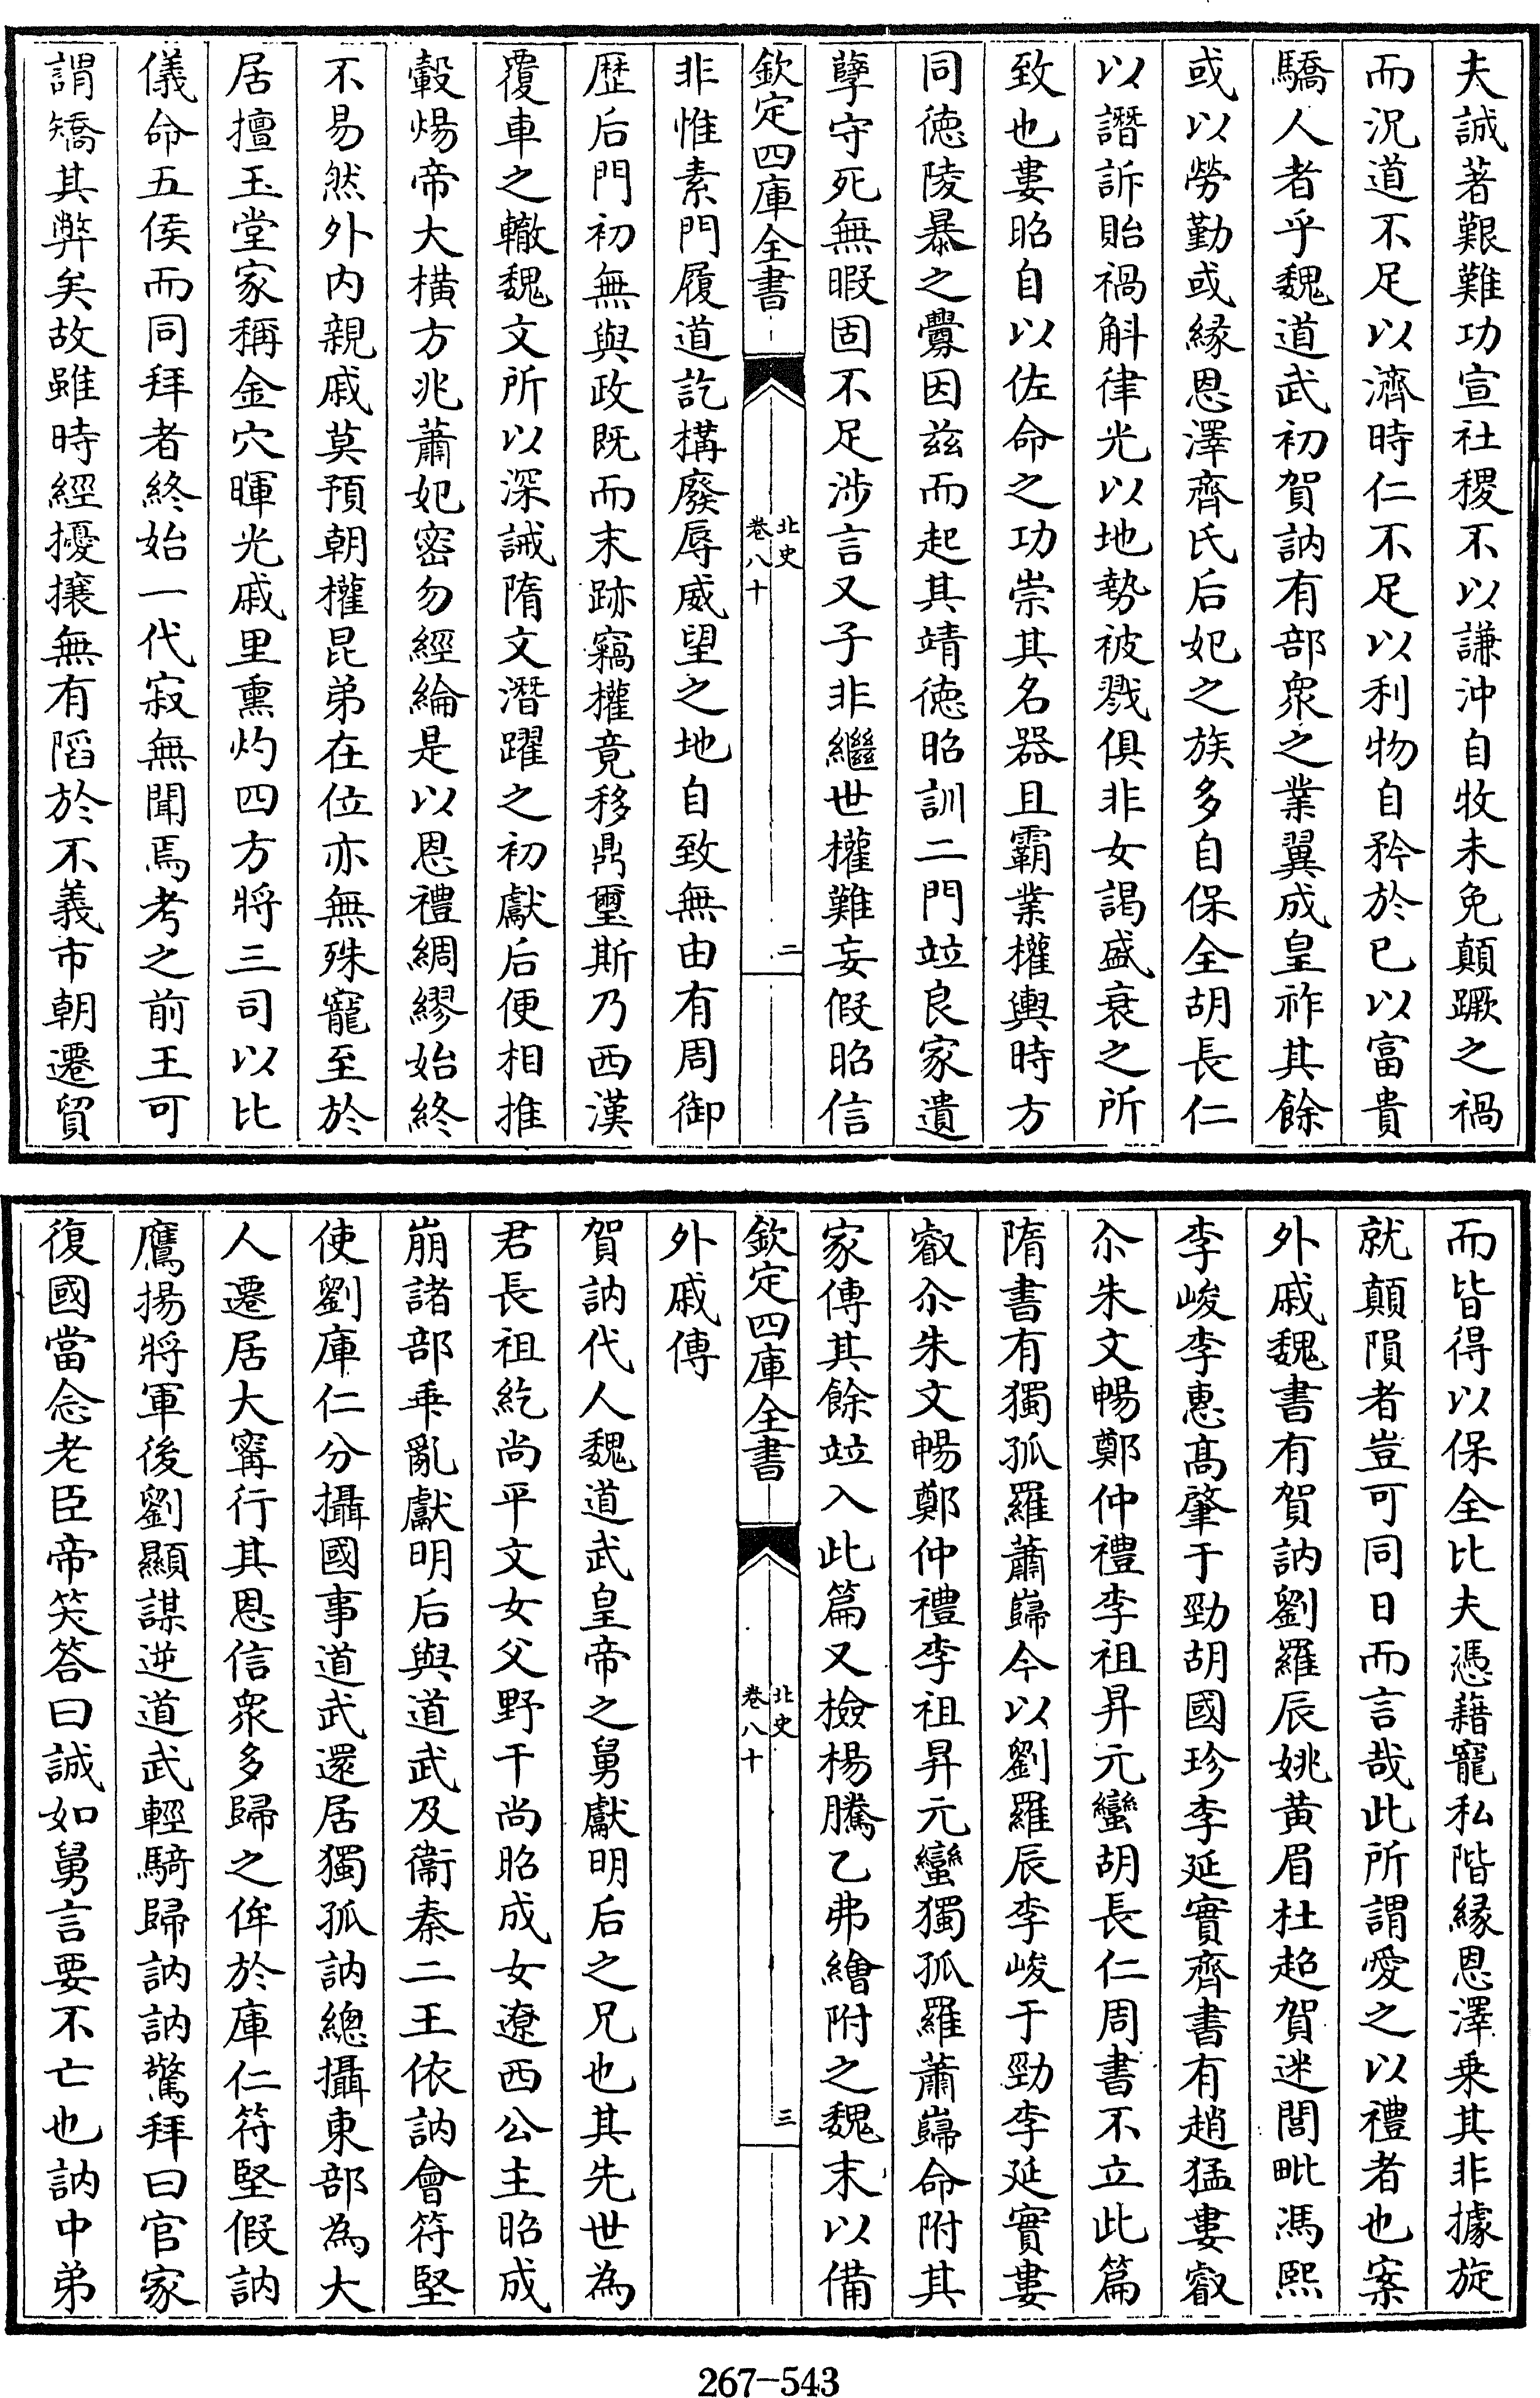 夫誠著艱難功宣社稷不以謙沖自牧未免顛蹶之禍
而況道不足以濟時仁不足以利物自矜於已以富貴
驕人者乎魏道武初賀訥有部衆之業翼成皇祚其餘
或以勞勤或縁恩澤齊氏后妃之族多自保全胡長仁
以譖訴貽禍斛律光以地勢被戮俱非女謁盛衰之所
致也婁昭自以佐命之功崇其名器且霸業權輿時方
同徳陵暴之釁因兹而起其靖徳昭訓二門竝良家遺
孽守死無暇固不足涉言又子非繼世權難妄假昭信
欽定四庫全書
北史
卷八十
二
非惟素門履道訖構廢辱威望之地自致無由有周御
歴后門初無與政既而末跡竊權竟移鼎璽斯乃西漢
覆車之轍魏文所以深誡隋文潛躍之初獻后便相推
轂煬帝大橫方兆蕭妃密勿經綸是以恩禮綢繆始終
不易然外内親戚莫預朝權昆弟在位亦無殊寵至於
居擅玉堂家稱金穴暉光戚里熏灼四方將三司以比
儀命五侯而同拜者終始一代寂無聞焉考之前王可
謂矯其弊矣故雖時經擾攘無有陷於不義市朝遷貿
而皆得以保全比夫憑藉寵私階縁恩澤乗其非據旋
就顛隕者豈可同日而言哉此所謂愛之以禮者也案
外戚魏書有賀訥劉羅辰姚黄眉杜超賀迷閭毗馮熙
李峻李惠髙肇于勁胡國珍李延實齊書有趙猛婁叡
尒朱文暢鄭仲禮李祖昇元蠻胡長仁周書不立此篇
隋書有獨孤羅蕭巋今以劉羅辰李峻于勁李延實婁
叡尒朱文暢鄭仲禮李祖昇元蠻獨孤羅蕭巋命附其
家傳其餘竝入此篇又檢楊騰乙弗繪附之魏末以備
欽定四庫全書
北史
卷八十
三
外戚傳
賀訥代人魏道武皇帝之舅獻明后之兄也其先世為
君長祖紇尚平文女父野干尚昭成女遼西公主昭成
崩諸部乗亂獻明后與道武及衞秦二王依訥會符堅
使劉庫仁分攝國事道武還居獨孤訥總攝東部為大
人遷居大甯行其恩信衆多歸之侔於庫仁符堅假訥
鷹揚將軍後劉顯謀逆道武輕騎歸訥訥驚拜曰官家
復國當念老臣帝笑答曰誠如舅言要不亡也訥中弟
267-543